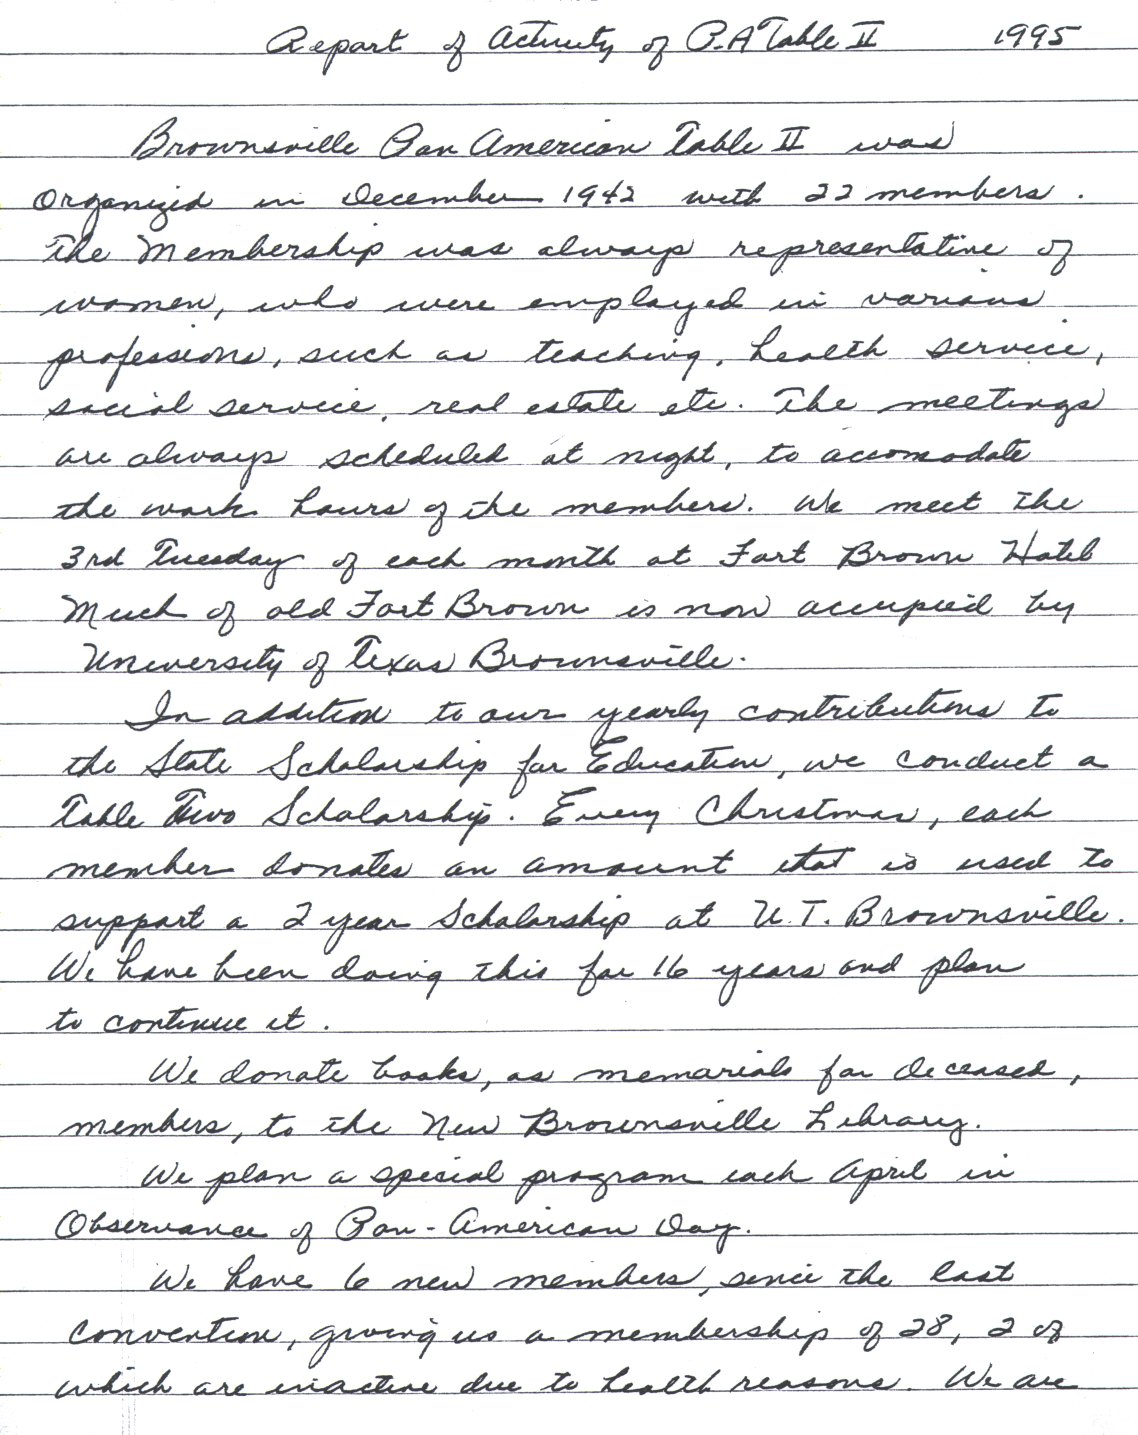 Report of Activity of P.A Table II 1995
Brownsville Pan American Table II was
Organized in December 1942 with 22 members.
The Membership was always representative of
women, who were employed in various
professions, such as teaching, health service,
social service, real estate etc. The meetings
are always scheduled at night, to accomodate
the work hours of the members. We meet the
3rd Tuesday of each month at Fort Brown Hotel
Much of old Fort Brown is now occupied by
University of Texas Brownsville.
In addition to our yearly contributions to
the State Scholarship for Education, we conduct a
Table Two Scholarship. Every Christmas, each
member donates an amount that is used to
support a 2 year Scholarship at U.T. Brownsville.
We have been doing this for 16 years and plan
to continue it.
We donate books, as memorials for deceased,
members, to the New Brownsville Library.
We plan a special program each April in
Observance of Pan-American Day.
We have 6 new members, since the last
convention, giving us a membership of 28, 2 of
which are inactive due to health reasons. We are